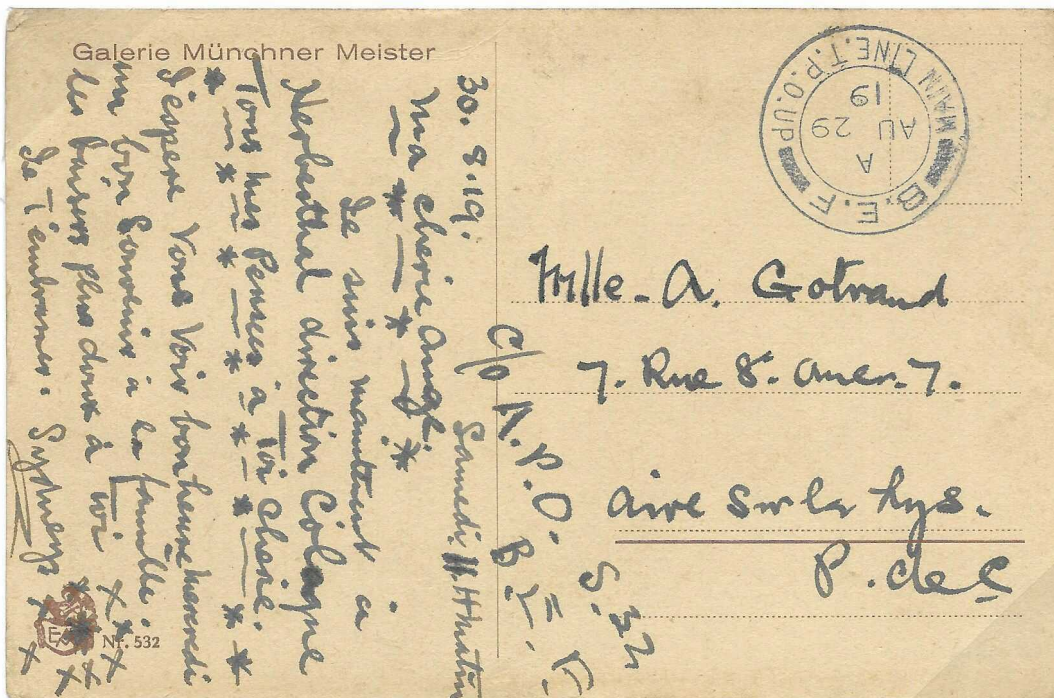 Galerie Münchner Meister
30.8.19.
Samedi. 11.H Matin
Ma cherie Angl.
Je suis maintenant a
Herbesthal direction Cologne
Tous mes Pensees à Toi Cherie.
J'espere Vous Voir bonheure mercredi
un bon Souvenir à la famille.
les baisers plus doux à Toi XXX
Je T'embrasses. Sydney XXX
Nr. 532
B.E.F MAIN LINE.T.P.O.UP
A
AU 29
19
Mlle. A. Gotrand
7. Rue St. 7.
Aire Sur la Lys.
P. de C
c/o A.P.O. S.32
B.E.F.